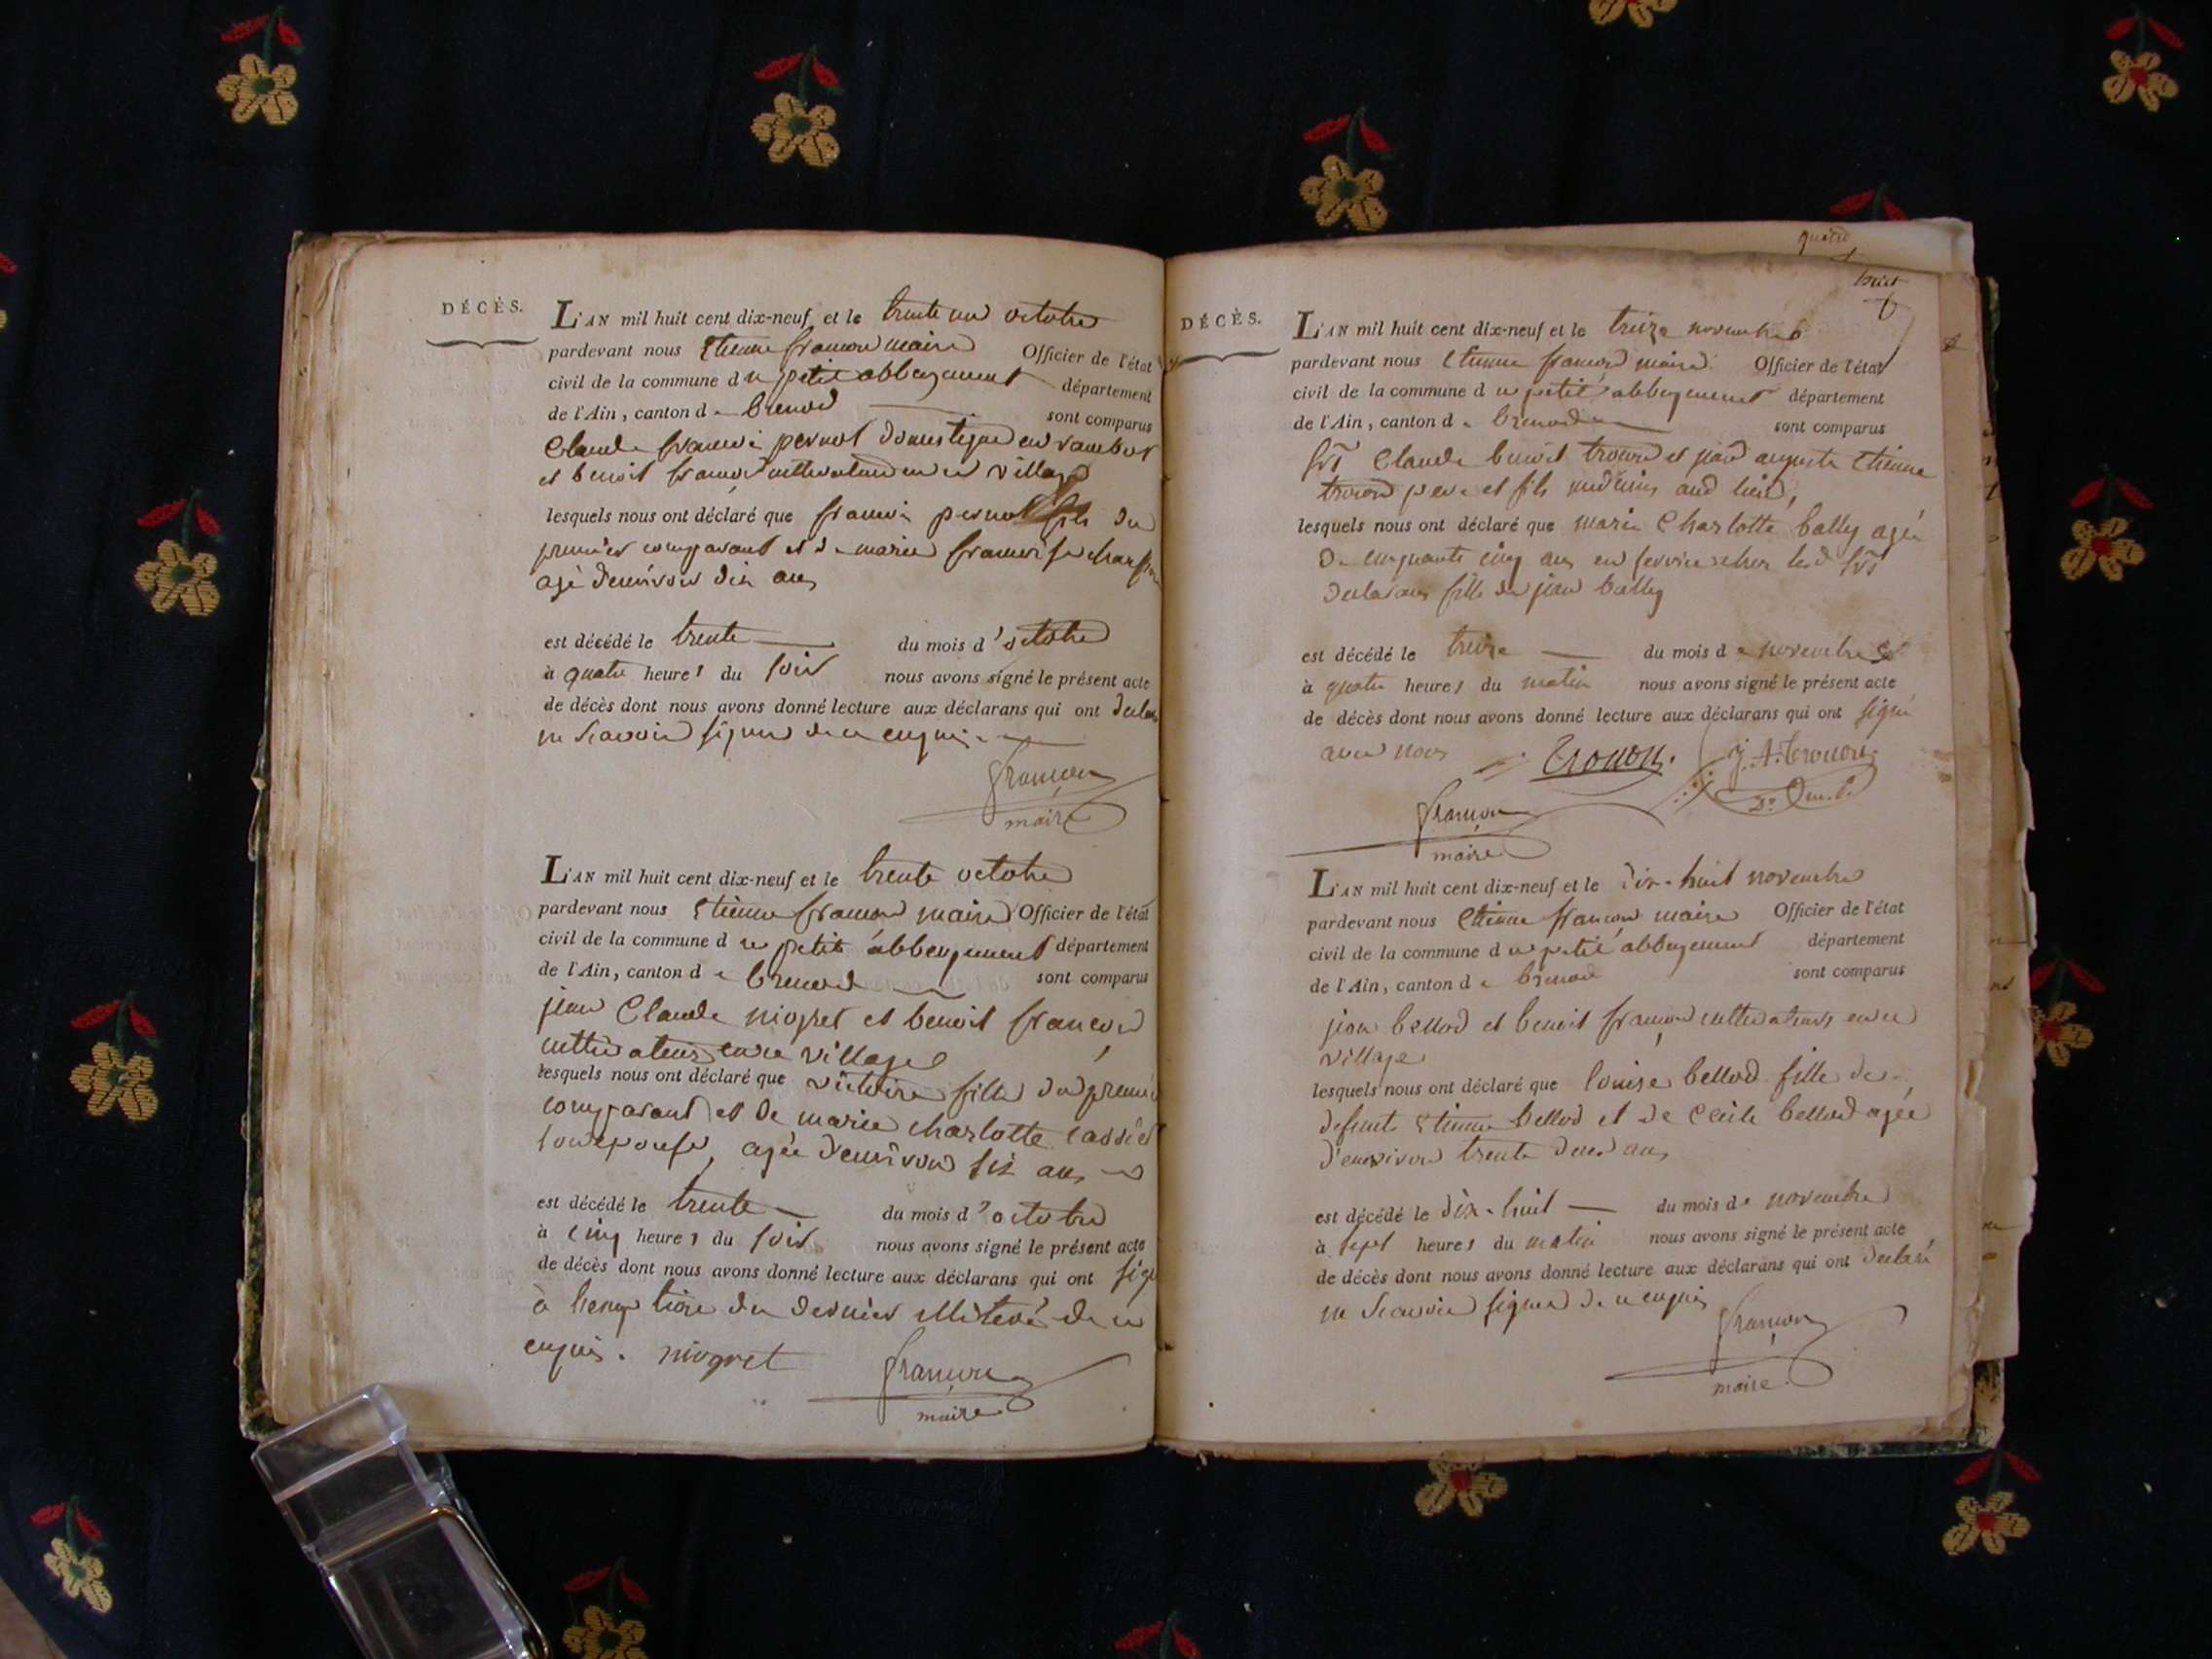 DÉCÈS.
L'AN mil huit cent dix-neuf et le trente un octobre
pardevant nous Etienne françon maire Officier de l'état
civil de la commune du petit abbergement département
de l'Ain, canton de brenod sont comparus
Claude françois pernot domestique en
et benoit françon cultivateur en ce village
lesquels nous ont déclaré que françois pernot fils du
premier comparant et de marie françoise
agé denviron dix ans
est décédé le trente du mois d'octobre
à quatre heures du soir nous avons signé le présent acte
de décès dont nous avons donné lecture aux déclarans qui ont
ne scavoir signer de ce enquis.
françon
maire
L'AN mil huit cent dix-neuf et le trente octobre
pardevant nous Etienne françon maire Officier de l'état
civil de la commune du petit abbergement département
de l'Ain, canton de brenod sont comparus
jean Claude niogret et benoit françon
cultivateurs en ce village
lesquels nous ont déclaré que victoire fille du premier
comparant et de marie charlotte
son epouse, agée denviron six ans
est décédé le trente du mois d'octobre
à cinq heures du soir nous avons signé le présent acte
de décès dont nous avons donné lecture aux déclarans qui ont
à du dernier illiteré de ce
enquis. niogret françon
maire
quatre
huit
DÉCÈS.
L'AN mil huit cent dix-neuf et le treize novembre
pardevant nous Etienne françon maire Officier de l'état
civil de la commune du petit abbergement département
de l'Ain, canton de brenod sont comparus
Claude benoit tronon et jean auguste Etienne
tronon pere et fils medecins aud lieu,
lesquels nous ont déclaré que marie Charlotte bally agée
de cinquante cinq ans en service chez led
declarans fille de jean bally
est décédé le treize du mois de novembre
à quatre heures du matin nous avons signé le présent acte
de décès dont nous avons donné lecture aux déclarans qui ont signé
avec nous Tronon. j. A. Tronon
françon
maire
L'AN mil huit cent dix-neuf et le dix-huit novembre
pardevant nous Etienne françon maire Officier de l'état
civil de la commune du petit abbergement département
de l'Ain, canton de brenod sont comparus
jean bellod et benoit françon cultivateurs en ce
village
lesquels nous ont déclaré que louise bellod fille de
defunt Etienne bellod et de Cécile bellod agée
d'environ trente deux ans
est décédé le dix-huit du mois de novembre
à sept heures du matin nous avons signé le présent acte
de décès dont nous avons donné lecture aux déclarans qui ont declaré
ne scavoir signer de ce enquis
françon
maire